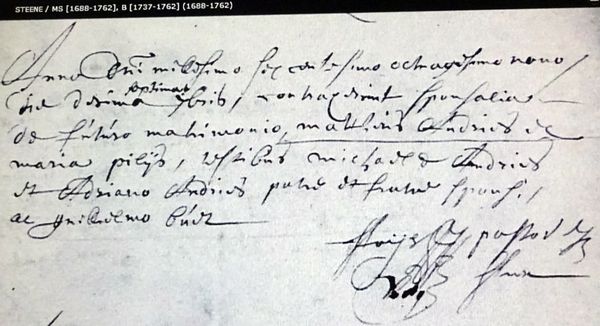 STEENE / MS [1688-1762], B [1737-1762] (1688-1762)
Anno Dni millesimo sex centesimo octuagesimo nono
die decima septima 7bris, contraxerunt sponsalia
de futuro matrimonio, mattheus Andries et
maria pilijs, testibus michaele Andries
et Adriano Andries patre et fratre sponsi,
ac guilielmo
pastor